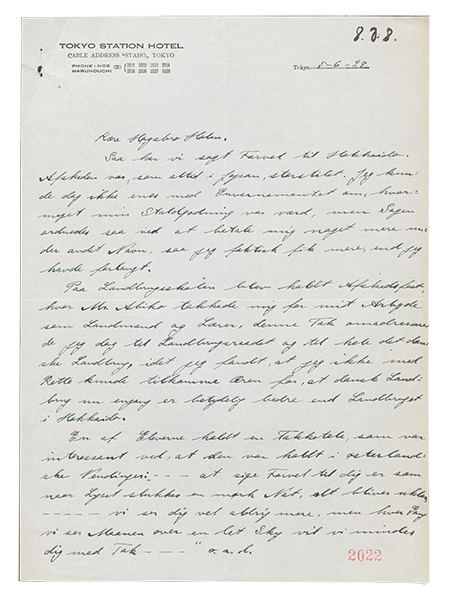 8.J.8.
TOKYO STATION HOTEL
CABLE ADDRESS "STAHO," TOKYO
PHONE: NOS (23)
MARUNOUCHI
Tokyo, 8-6-28
Kære Høgsbro Holm.
Saa har vi sagt Farvel til Hokkaido.
Afskeden var, som altid i Japan, storstilet. Jeg kun-
de dog ikke enes med Guvernementet om, hvor-
meget min Staldgødning var værd, men Sagen
ordnedes saa ved at betale mig noget mere un-
der andet Navn, saa jeg faktisk fik mere, end jeg
havde forlangt.
Paa Landbrugsskolen blev holdt Afskedsfest,
hvor Mr. takkede mig for mit Arbejde
som Landmand og Lærer, denne Tak omadresse-
de jeg dog til Landbrugsraadet og til hele det dan-
ske Landbrug, idet jeg fandt, at jeg ikke med
Rette kunde tilkomme Æren for, at dansk Land-
brug nu engang er betydelig bedre end Landbruget
i Hokkaido.
En af Eleverne holdt en Takketale, som var
interessant ved, at den var holdt i østerland-
ske Vendinger: - - - at sige Farvel til dig er som
naar Lyset slukkes en mørk Nat, alt bliver
- - - - - vi ser dig vel aldrig mere, men hver Gang
vi ser Maanen over en let Sky vil vi mindes
dig med Tak - - - - " o.a.d.
2022